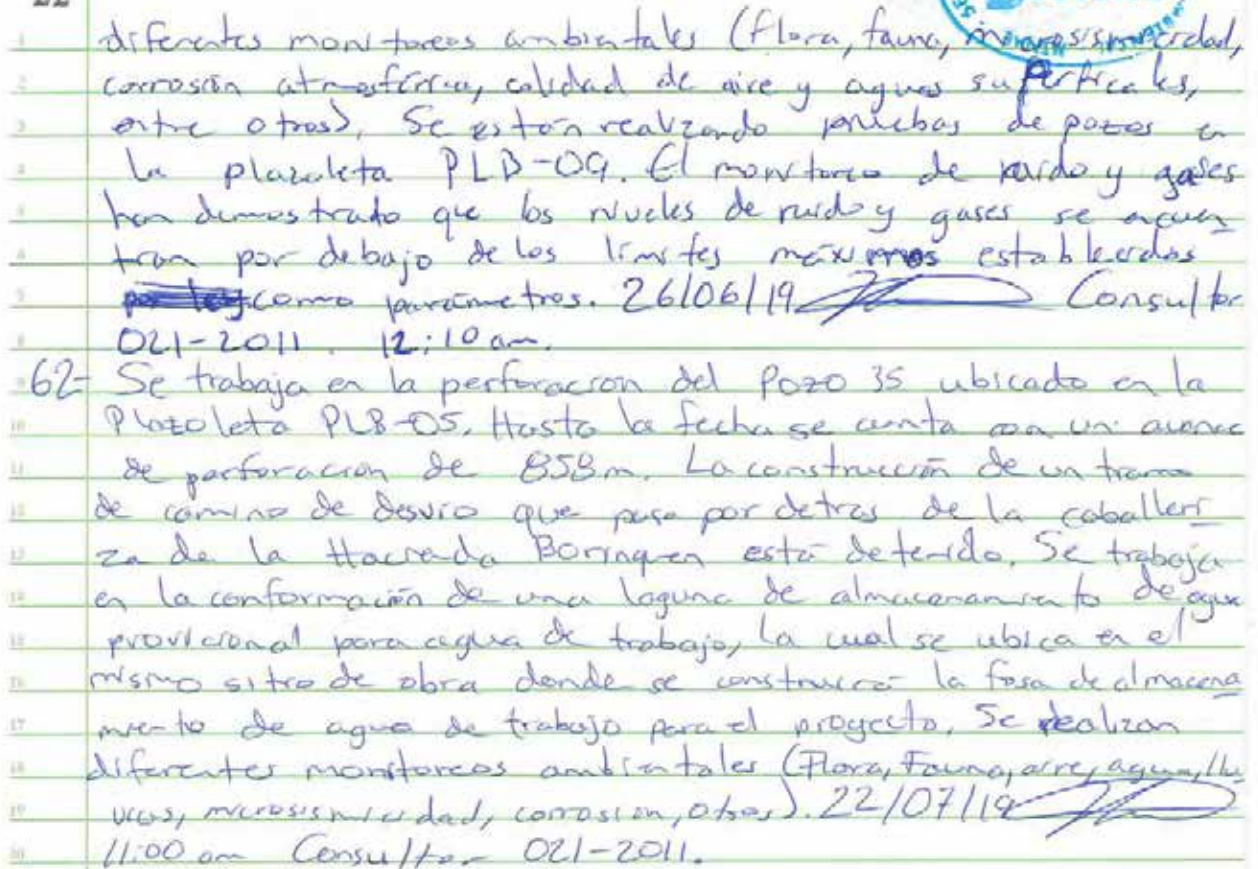 22
diferentes monitoreos ambientales (flora, fauna, microsismicidad,
corrosión atmosférica, calidad de aire y aguas superficiales,
entre otros). Se están realizando pruebas de pozos en
la plazoleta PLB-09. El monitoreo de ruido y gases
han demostrado que los niveles de ruido y gases se encuen
tran por debajo de los límites máximos establecidos
por ley como parámetros. 26/06/19 Consultor
021-2011. 12:10 am.
62- Se trabaja en la perforación del Pozo 35 ubicado en la
Plazoleta PLB-05. Hasta la fecha se cuenta con un avance
de perforación de 858 m. La construcción de un tramo
de camino de desvío que pasa por detras de la caballeri
za de la Hacienda Borinquen está detenido. Se trabaja
en la conformación de una laguna de almacenamiento de agua
provicional para agua de trabajo, la cual se ubica en el
mismo sitio de obra donde se construirá la fosa de almacena
miento de agua de trabajo para el proyecto. Se realizan
diferentes monitoreos ambientales (Flora, Fauna, aire, agua, llu
vias, microsismicidad, corrosión, otros). 22/07/19
11:00 am Consultor 021-2011.